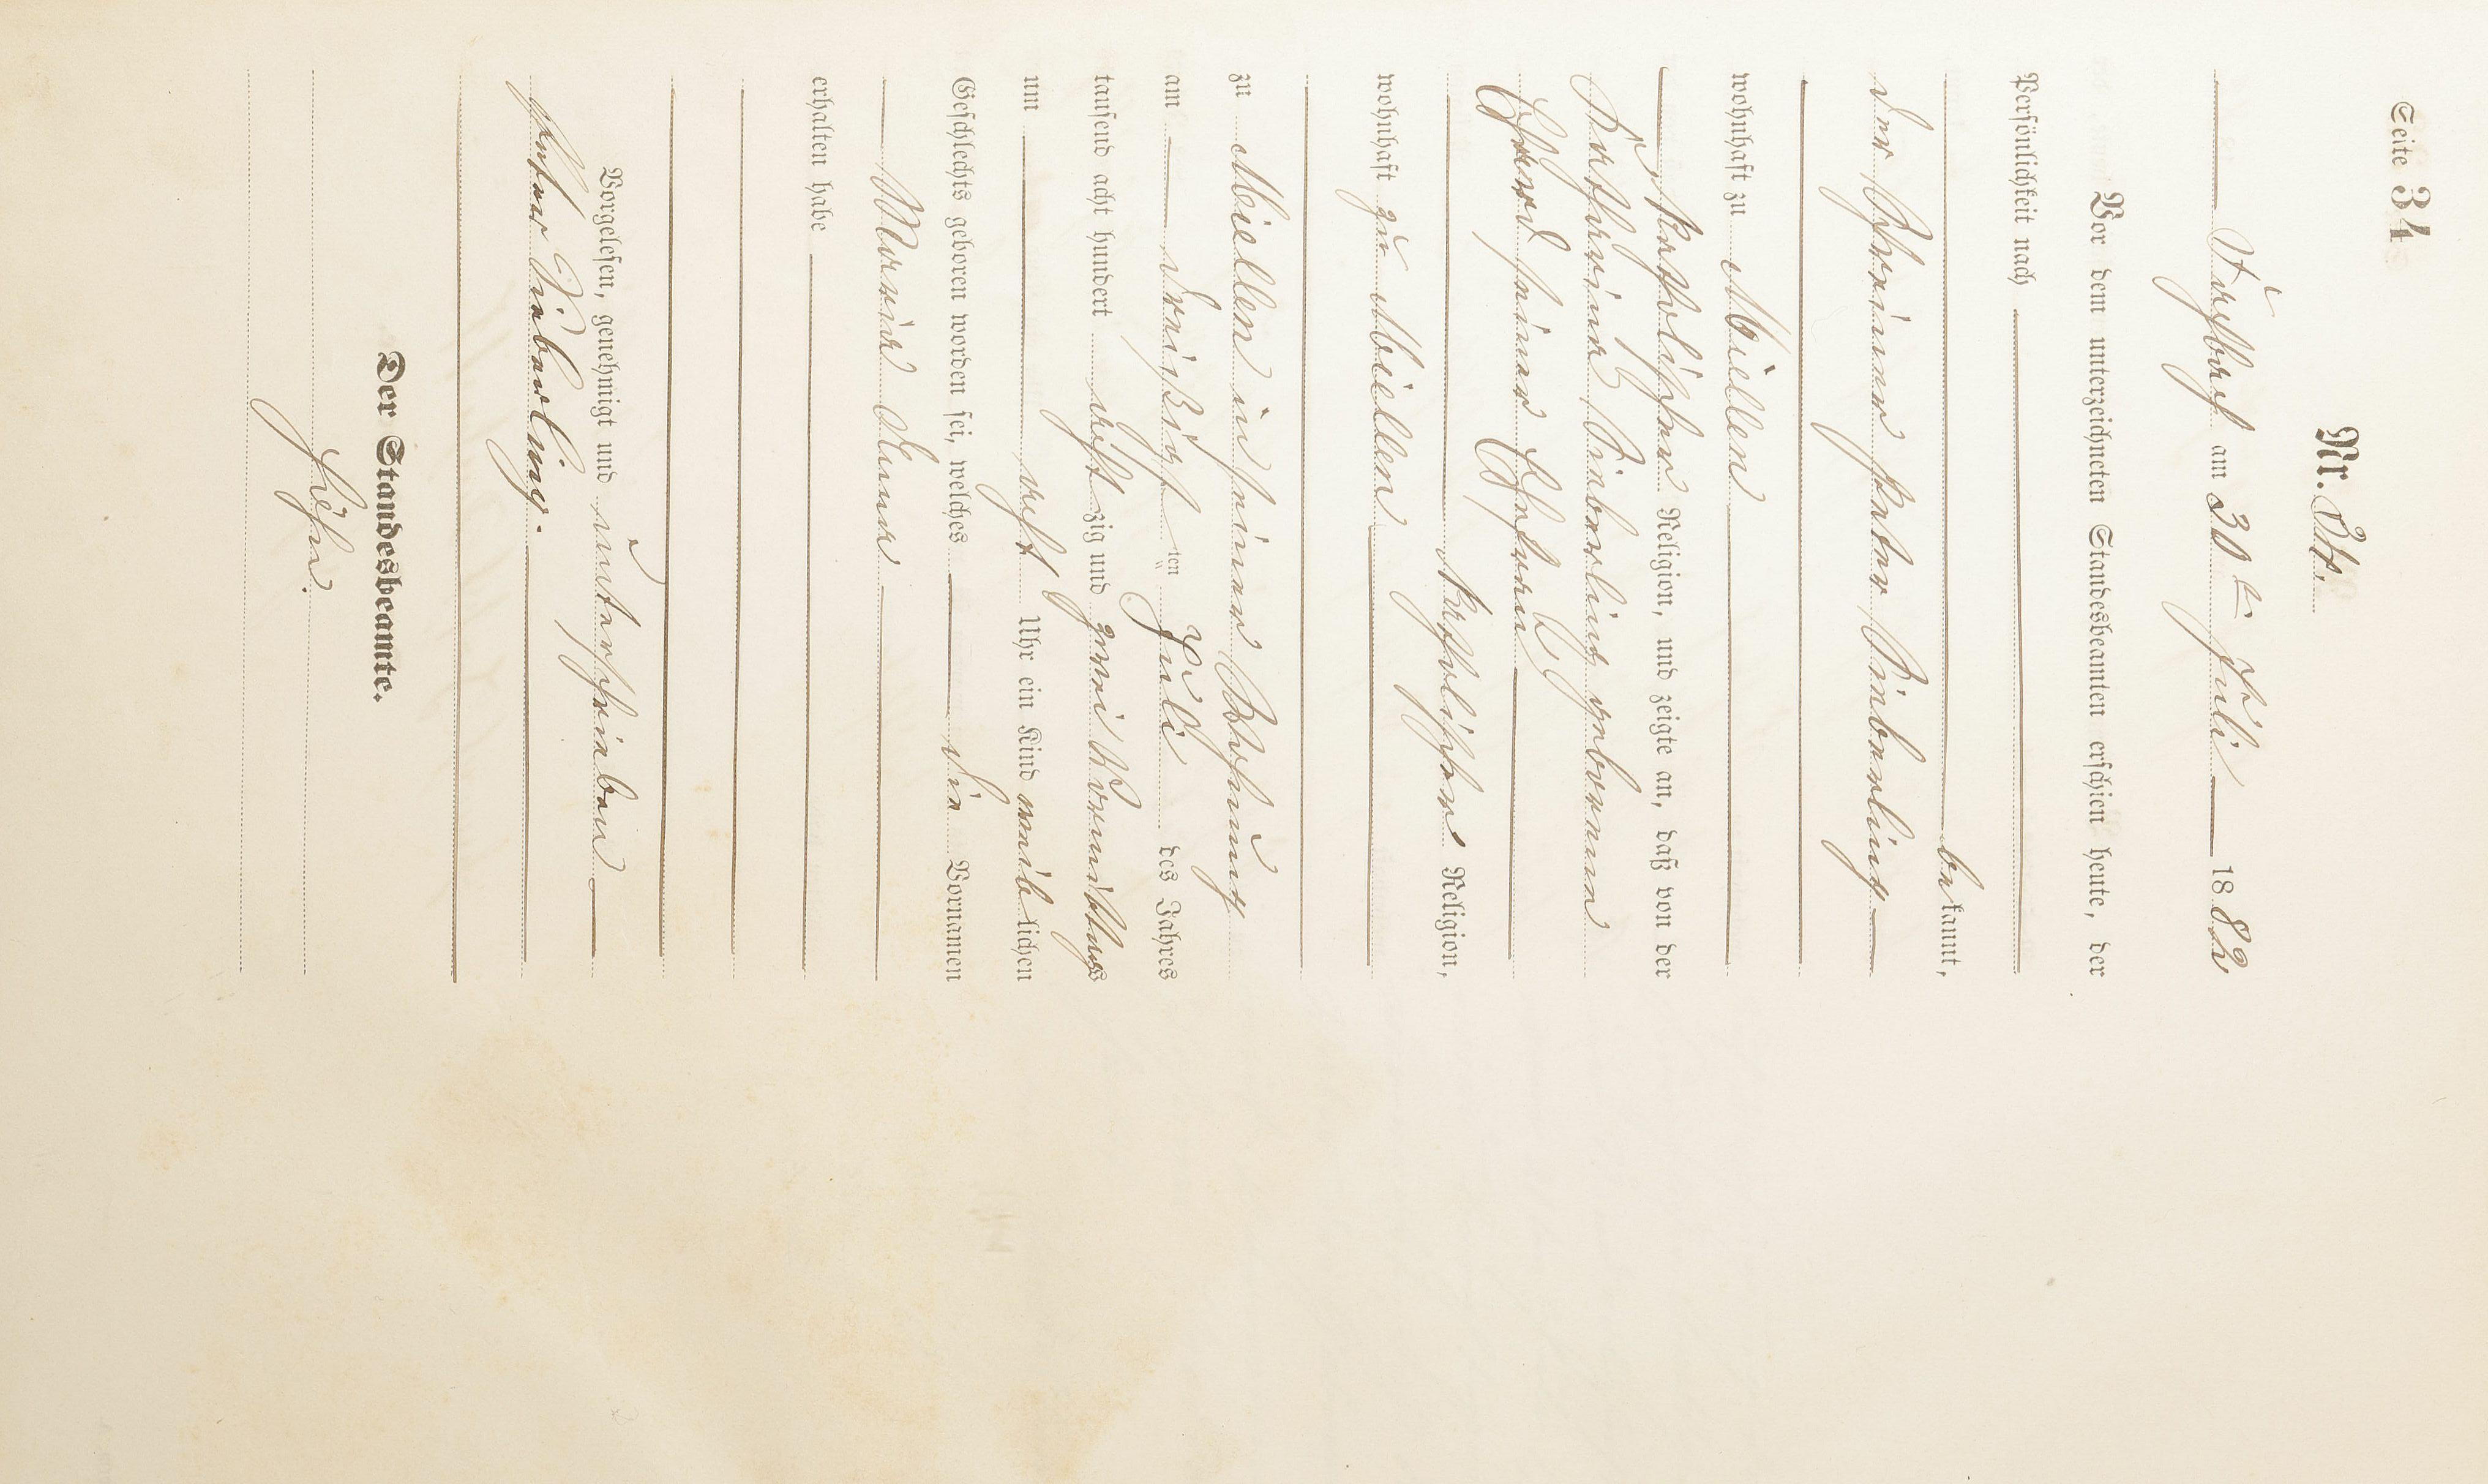 Seite 34
Nr. 34.
Fachbach am 30ten Juli 1882
Vor dem unterzeichneten Standesbeamten erschien heute, der
Persönlichkeit nach
bekannt,
der Schreiner Peter Nieberling
wohnhaft zu Miellen
katholischer Religion, und zeigte an, daß von der
Katharina Nieberling geborenen
seiner Ehefrau
katholischer Religion,
wohnhaft zu Miellen
zu Miellen in seiner Wohnung
am dreißigsten Juli des Jahres
tausend acht hundert achtzig und zwei Vormittags
um acht Uhr ein Kind weiblichen
Geschlechts geboren worden sei, welches die Vornamen
Maria Anna
erhalten habe
Vorgelesen, genehmigt und unterschrieben
Peter Nieberling.
Der Standesbeamte.